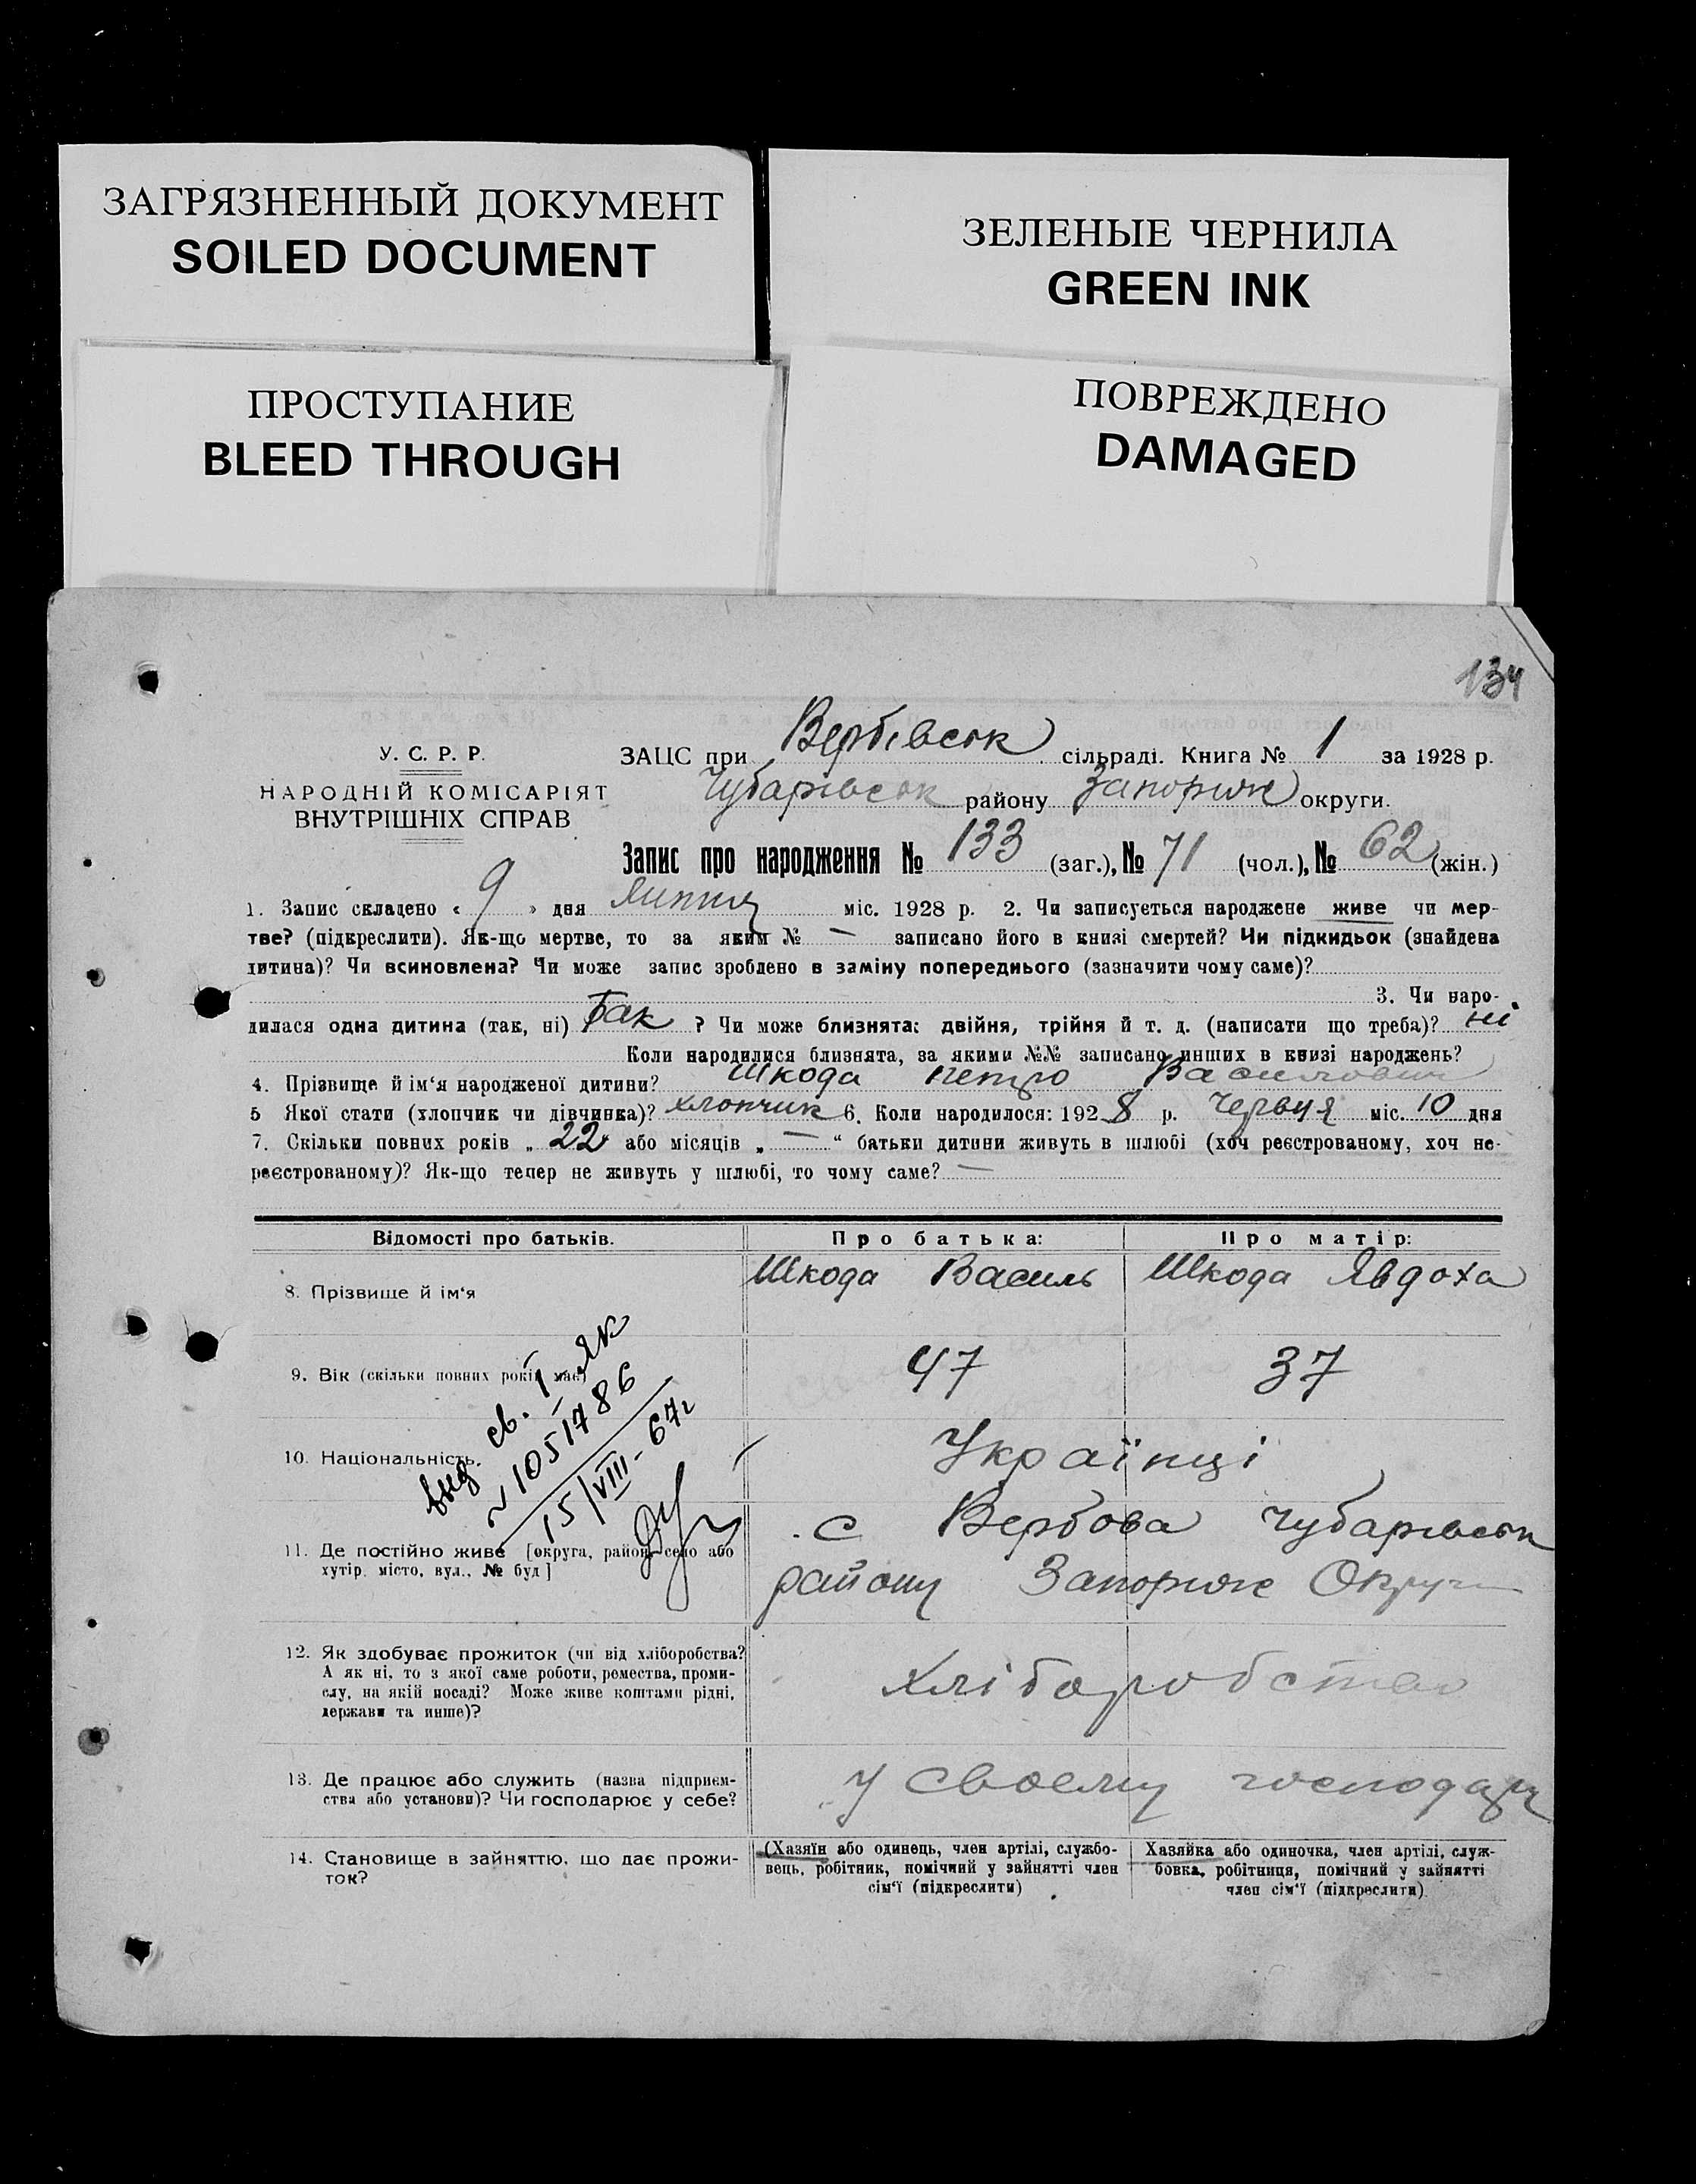 ЗАГРЯЗНЕННЫЙ ДОКУМЕНТ
SOILED DOCUMENT
ЗЕЛЕНЫЕ ЧЕРНИЛА
GREEN INK
ПРОСТУПАНИЕ
BLEED THROUGH
ПОВРЕЖДЕНО
DAMAGED
134
У. С. Р. Р.
НАРОДНІЙ КОМІСАРІЯТ
ВНУТРІШНІХ СПРАВ
ЗАЦС при Вербівськ сільраді. Книга № 1 за 1928 р.
Чубарівськ району Запоріж округи.
Запис про народження № 133 (заг.), № 71 (чол.), № 62 (жін.)
1. Запис складено « 9 » дня Липня міс. 1928 р. 2. Чи записується народжене живе чи мер-
тве? (підкреслити). Як-що мертве, то за яким № — записано його в книзі смертей? Чи підкидьок (знайдена
дитина)? Чи всиновлена? Чи може запис зроблено в заміну попереднього (зазначити чому саме)?
3. Чи наро-
дилася одна дитина (так, ні) Так ? Чи може близнята: двійня, трійня й т. д. (написати що треба)? ні
Коли народилися близнята, за якими №№ записано инших в книзі народжень?
4. Прізвище й ім‘я народженої дитини? Шкода Петро Василович
5 Якої стати (хлопчик чи дівчинка)? хлопчик 6. Коли народилося: 1928 р. Червня міс. 10 дня
7. Скільки повних років „ 22 або місяців „ — “ батьки дитини живуть в шлюбі (хоч реєстрованому, хоч не-
реєстрованому)? Як-що тепер не живуть у шлюбі, то чому саме? —
Відомості про батьків. Про батька: Про матір:
8. Прізвище й ім‘я Шкода Василь Шкода Явдоха
9. Вік (скільки повних років має) 47 37
10. Національність. Українці
выд св. I-ЯК
~ 1051786
15/VIII-67г
11. Де постійно живе [округа, район, село або
хутір, місто, вул., № буд ]
с Вербова Чубарівськ
району Запоріж Округи
12. Як здобуває прожиток (чи від хліборобства?
А як ні, то з якої саме роботи, ремества, проми-
слу, на якій посаді? Може живе коштами рідні,
держави та инше)?
Хліборобство
13. Де працює або служить (назва підприєм-
ства або установи)? Чи господарює у себе?
У своєму господар
14. Становище в зайняттю, що дає прожи-
ток?
(Хазяїн або одинець, член артілі, службо-
вець, робітник, помічний у зайнятті член
сім‘ї (підкреслити)
Хазяйка або одиночка, член артілі, служ-
бовка, робітниця, помічний у зайнятті
член сім‘ї (підкреслити)